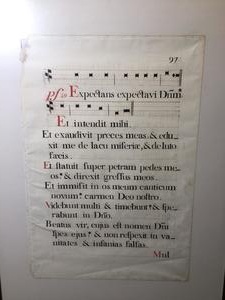 97
ps. 39 Expectans expectavi Dnm
Et intendit mihi.
Et exaudivit preces meas. & edu-
xit me de lacu miseriæ, & de luto
fæcis.
Et statuit super petram pedes me-
os: & direxit gressus meos.
Et immisit in os meum canticum
novum: carmen Deo nostro.
Videbunt multi & timebunt: & spe-
rabunt in Dno.
Beatus vir, cujus est nomen Dni
spes ejus: & non respexit in va-
nitates & insanias falsas.
Mul